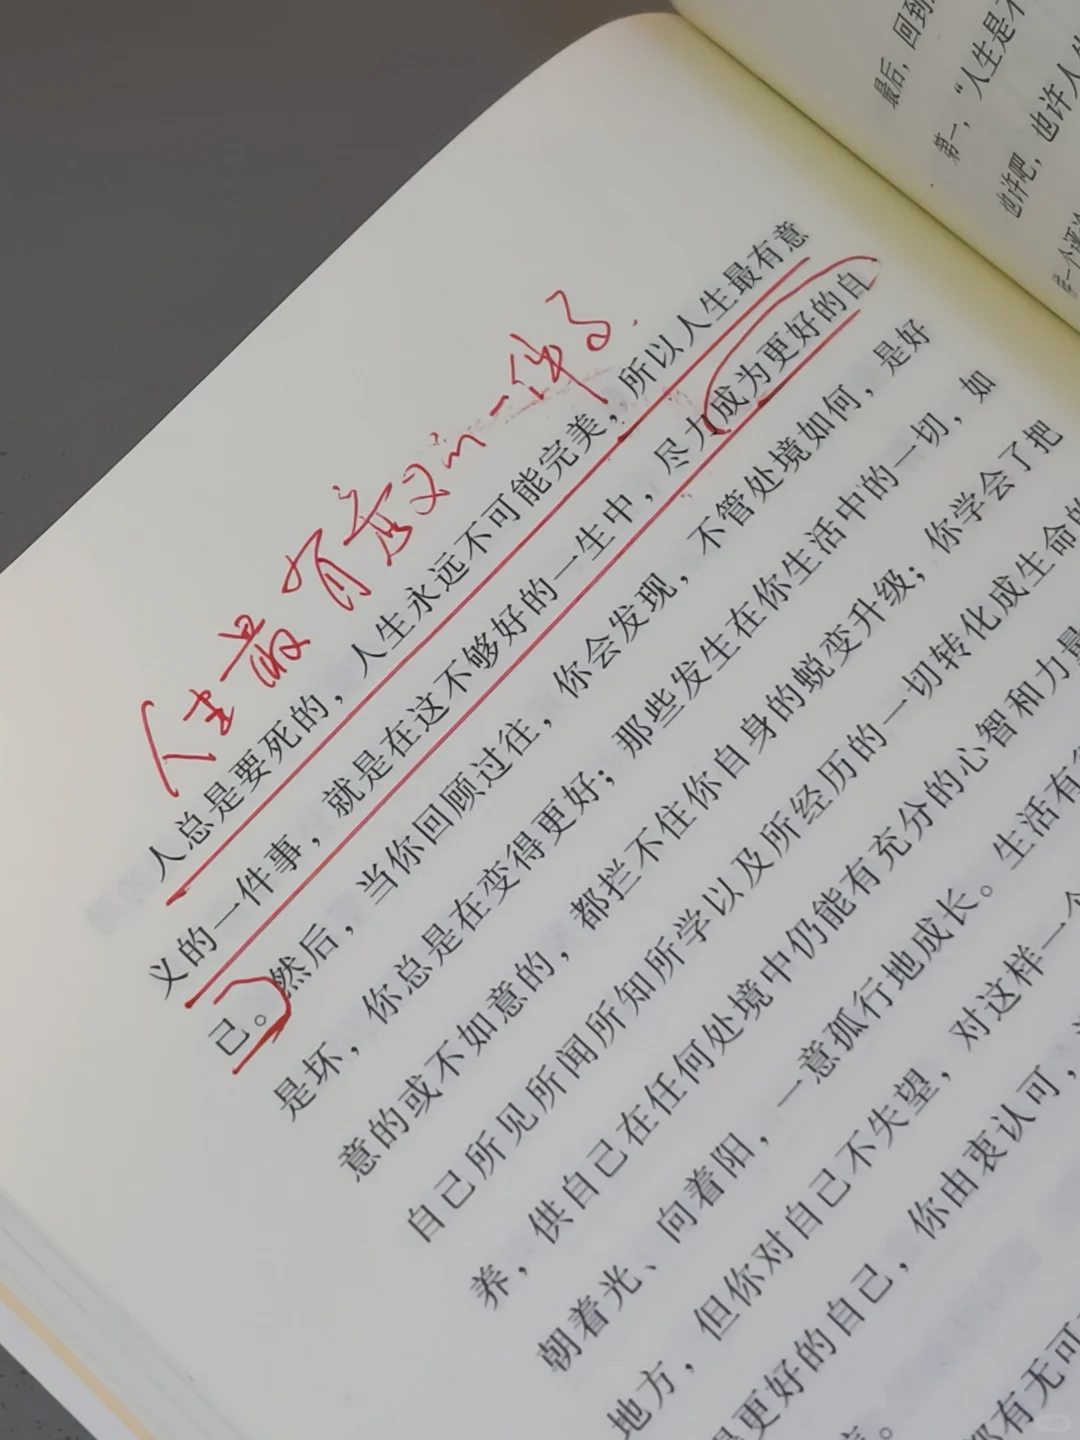 人生最有意义的一件事.
人总是要死的，人生永远不可能完美，所以人生最有意
义的一件事，就是在这不够好的一生中，尽力成为更好的自
己。然后，当你回顾过往，你会发现，不管处境如何，是好
是坏，你总是在变得更好；那些发生在你生活中的一切，如
意的或不如意的，都拦不住你自身的蜕变升级；你学会了把
自己所见所闻所知所学以及所经历的一切转化成生命的
养，供自己在任何处境中仍能有充分的心智和力量
朝着光、向着阳，一意孤行地成长。生活有
地方，但你对自己不失望，对这样一个
更好的自己，你由衷认可，
都有无可
最后，回到
第一，“人生是不
也许吧，也许人